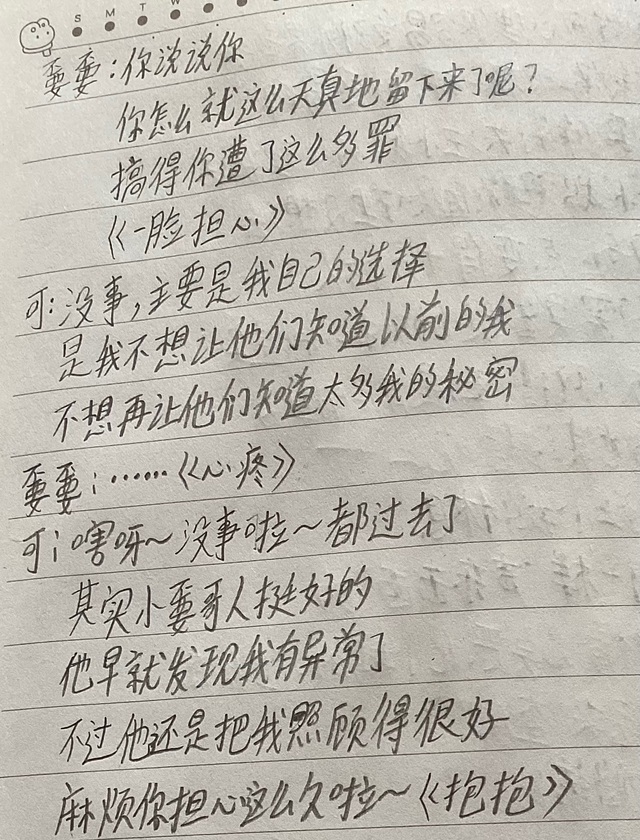 S M T W
嫑嫑:你说说你
你怎么就这么天真地留下来了呢?
搞得你遭了这么多罪
《一脸担心》
可:没事,主要是我自己的选择
是我不想让他们知道以前的我
不想再让他们知道太多我的秘密
嫑嫑:……《心疼》
可:嗐呀~没事啦~都过去了
其实小嫑哥人挺好的
他早就发现我有异常了
不过他还是把我照顾得很好
麻烦你担心这么久啦~《抱抱》